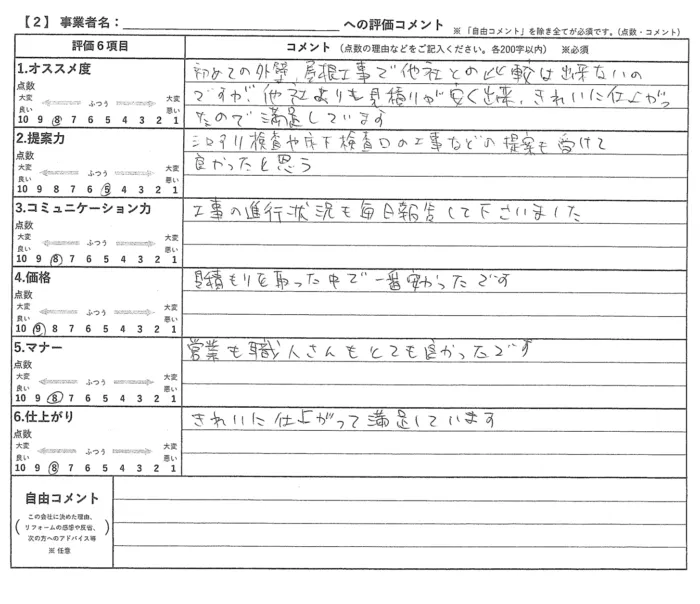 【2】事業者名：への評価コメント ※「自由コメント」を除き全てが必須です。（点数・コメント）
評価６項目 コメント（点数の理由などをご記入ください。各200字以内） ※必須
1.オススメ度
点数
大変 ふつう 大変
良い 悪い
10 9 8 7 6 5 4 3 2 1
初めての外壁、屋根工事で他社との比較は出来ないの
ですが、他社よりも見積りが安く出来、きれいに仕上がっ
たので満足しています
2.提案力
点数
大変 ふつう 大変
良い 悪い
10 9 8 7 6 5 4 3 2 1
シロアリ検査や床下検査口の工事などの提案も受けて
良かったと思う
3.コミュニケーション力
点数
大変 ふつう 大変
良い 悪い
10 9 8 7 6 5 4 3 2 1
工事の進行状況も毎日報告して下さいました
4.価格
点数
大変 ふつう 大変
良い 悪い
10 9 8 7 6 5 4 3 2 1
見積もりを取った中で一番安かったです
5.マナー
点数
大変 ふつう 大変
良い 悪い
10 9 8 7 6 5 4 3 2 1
営業も職人さんもとても良かったです
6.仕上がり
点数
大変 ふつう 大変
良い 悪い
10 9 8 7 6 5 4 3 2 1
きれいに仕上がって満足しています
自由コメント
（この会社に決めた理由、
リフォームの感想や反省、
次の方へのアドバイス等）
※ 任意